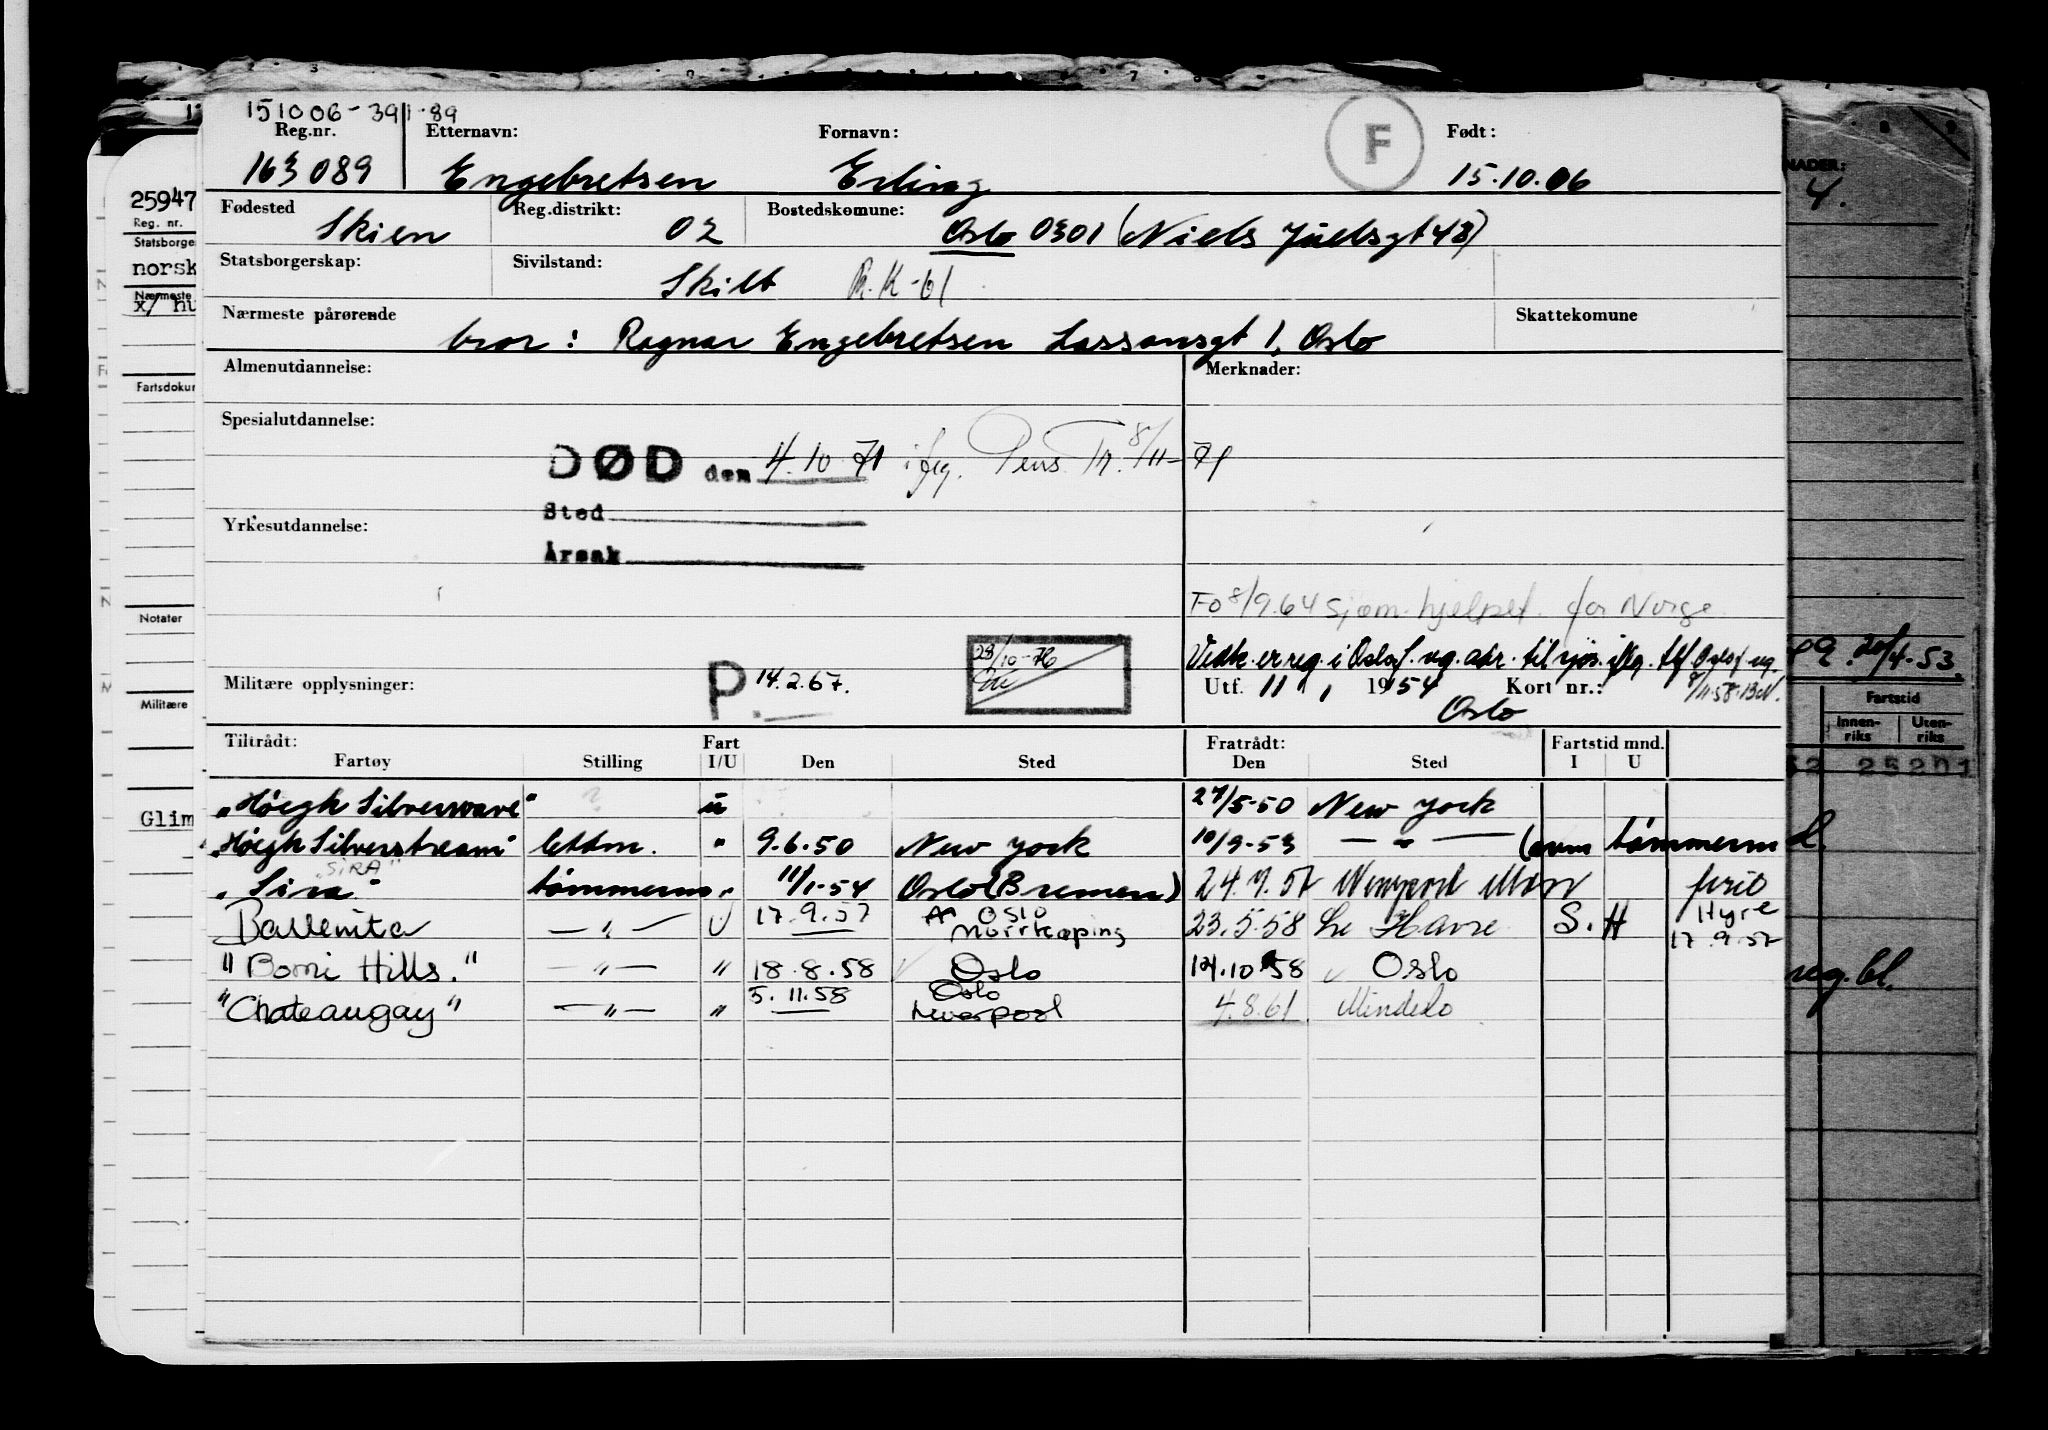 151006-391-89
Reg.nr. Etternavn: Fornavn: F Født:
163089 Engebretsen Erling 15.10.06
Fødested Reg.distrikt: Bostedskomune:
Skien 02 Oslo 0301 (Niels Juelsgt 48)
Statsborgerskap: Sivilstand:
Skilt R.K-61
Nærmeste pårørende Skattekomune
bror: Ragnar Engebretsen Lassonsgt 1, Oslo
Almenutdannelse: Merknader:
Spesialutdannelse:
DØD den 4.10.71 ifлg. Pens.Tr. 8/11-71
Sted
Yrkesutdannelse:
Årsak
Fo 8/9.64 sjøm.hjelpet. for Norge
Vedk. er reg. i Oslo f. og. adr. til sjøs. iflg. tlf Oslo
Militære opplysninger: P 14.2.67. 28/10-76
Utf. 11 1 1954 Kort nr.: 8/11.58.
Oslo
Tiltrådt: Fart Fratrådt: Fartstid mnd.
Fartøy Stilling I/U Den Sted Den Sted I U
"Høegh Silverwave" u 27/5-50 New York
"Høegh Silverstream" lettm. " 9.6.50 New York 10/9-53 — " — (avm tømmerm
"SIRA"
"Sira" tømmerm " 11/1-54 Oslo (Bremen) 24.7.57 Newport ferie
Ballenita — " — U 17.9.57 Oslo Norrkøping 23.5.58 Le Havre S.H Hyre 17.9.57
"Bomi Hills." — " — " 18.8.58 Oslo 14.10.58 Oslo
"Chateaugay" — " — " 5.11.58 Oslo Liverpool 4.8.61 Mindelo
25947
Reg. nr.
Statsborge
norsk
Nærmeste
x/ hu
Fartsdokur
Notater
Militære
Glim
NADER:
4.
20/4-53.
Fartstid
Innen-riks Uten-riks
52 25201
reg.bl.